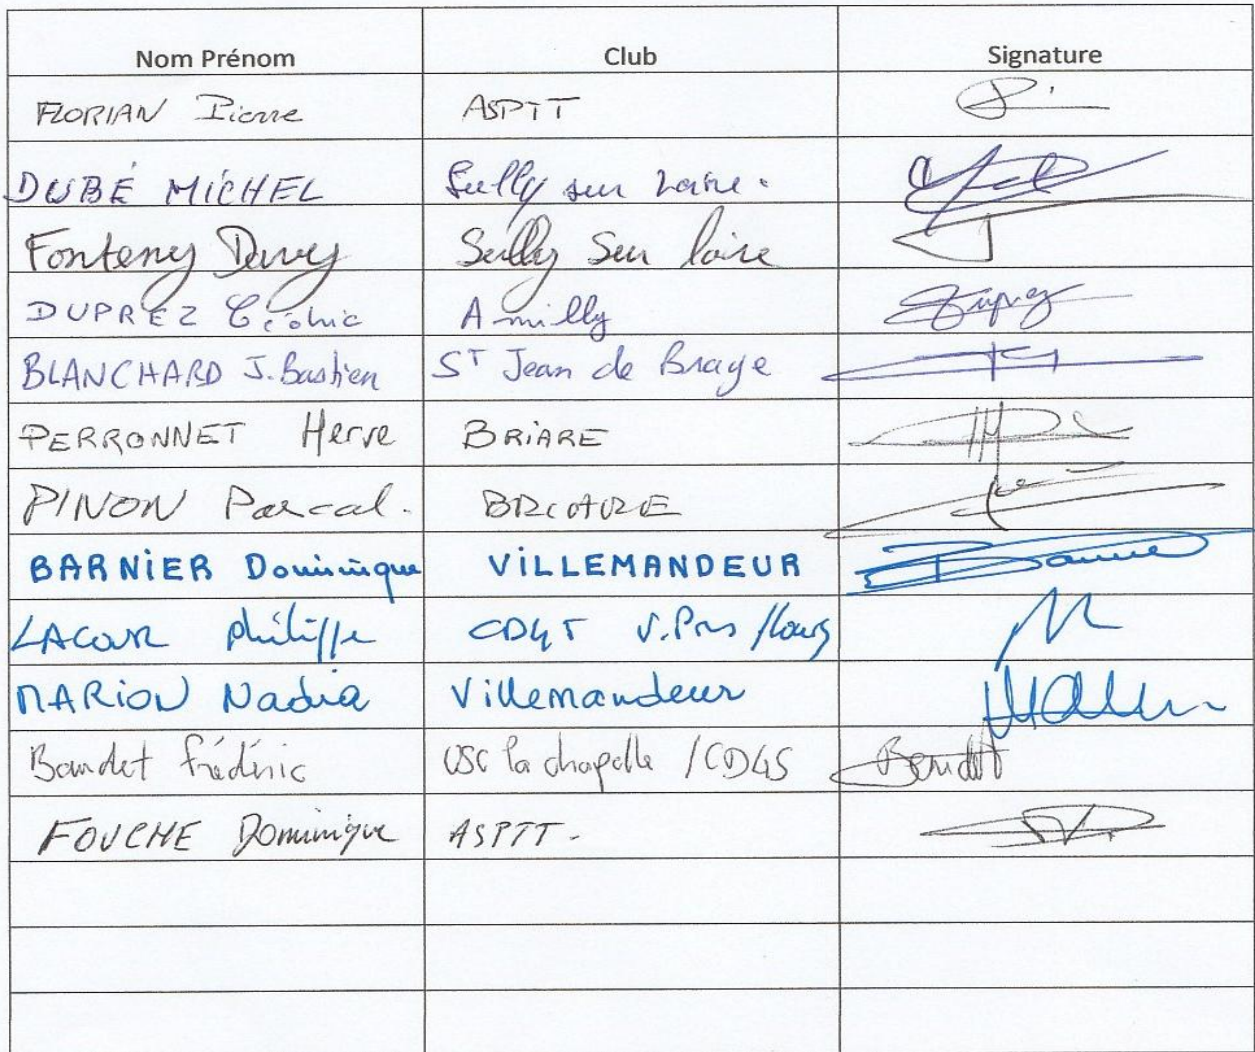 Nom Prénom Club Signature
FLORIAN Pierre ASPTT
DUBÉ MICHEL Sully sur Loire.
Fonteny Davy Sully Sur loire
DUPREZ Amilly Duprez
BLANCHARD J. Bastien ST Jean de Braye
PERRONNET Herve BRiARE
PINON Pascal. BRIARE
BARNiER Dominique ViLLEMANDEUR
LACOUR philippe CD45
MARION Nadia Villemandeur
Baudet frédéric USC la chapelle / CD45 Baudet
FOUCHE Dominique ASPTT-